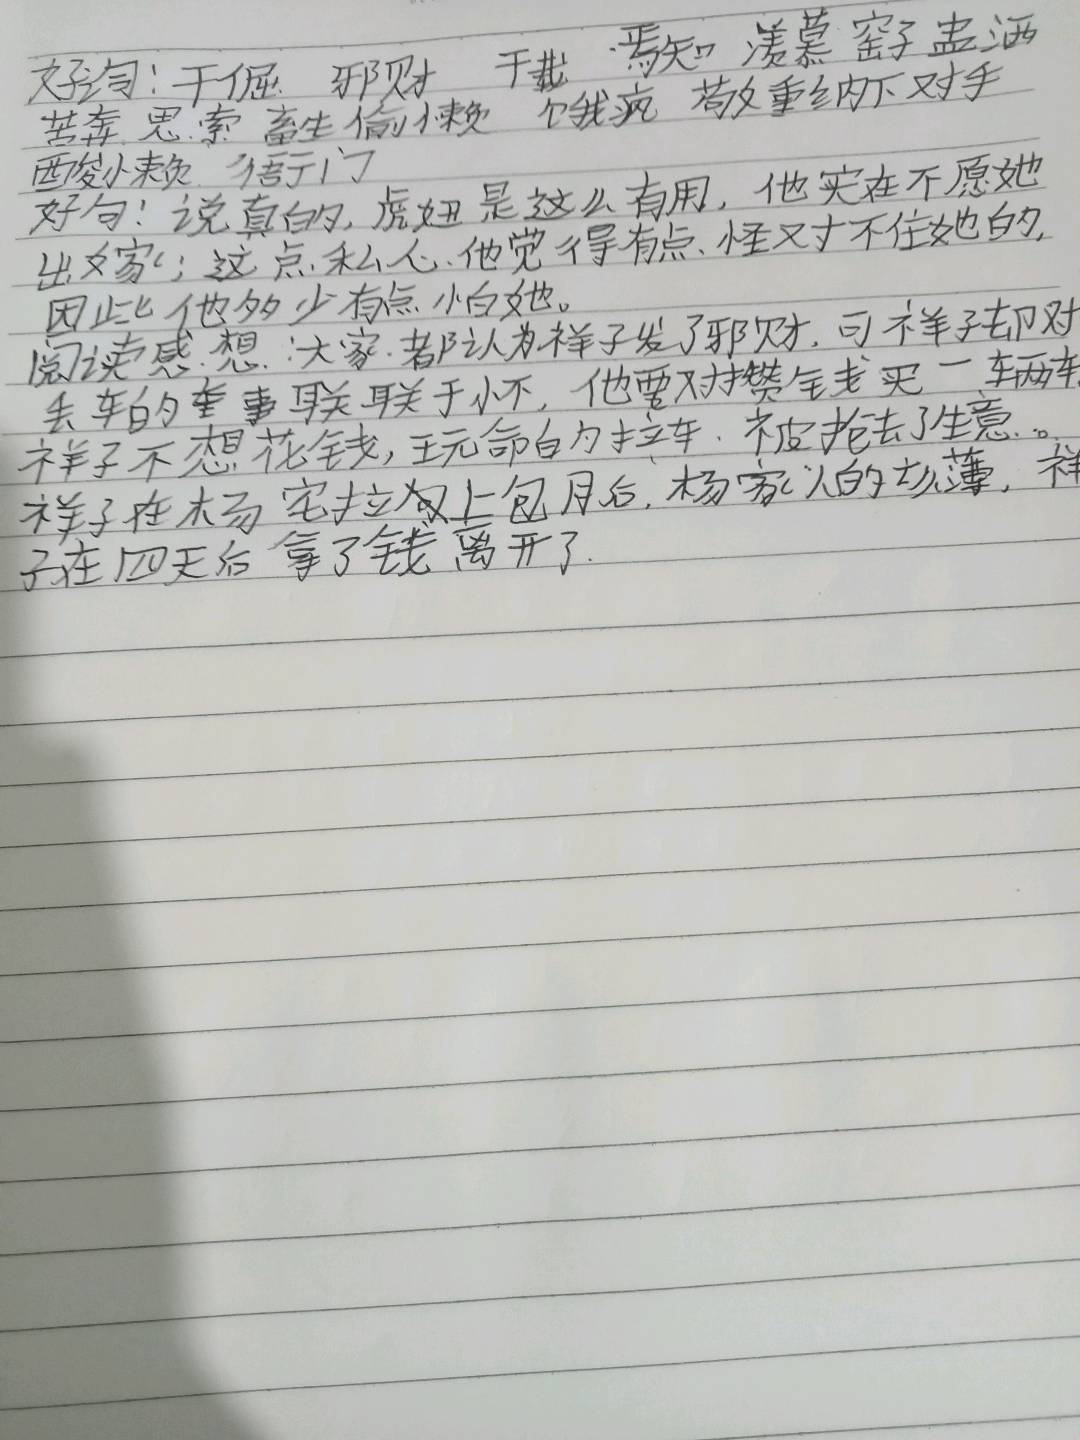 好词：干倔 邪财 干哉 焉知 羡慕 窑子 盅洒
苦奔 思索 畜生 偷懒 饿疯 敬重 纳下 对手
酸懒 衙门
好句：说真的，虎妞是这么有用，他实在不愿她
出嫁；这点私心，他觉得有点怪对不住她的，
因此他多少有点怕她。
阅读感想：大家都认为祥子发了邪财，可祥子却对
丢车的事耿耿于怀，他要攒钱买一车辆车
祥子不想花钱，玩命的拉车，被抢去了生意。
祥子在杨宅拉上包月后，杨家人的刻薄，祥
子在四天后拿了钱离开了.